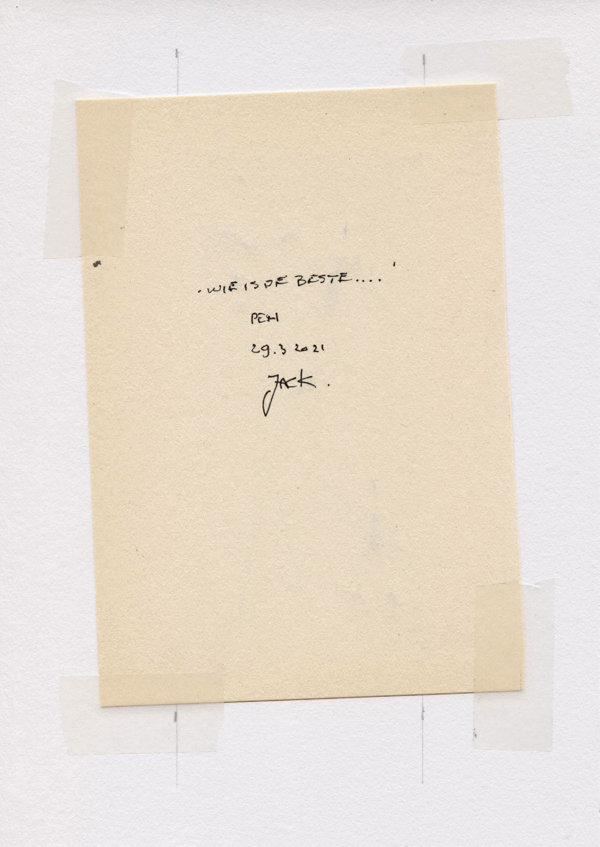 'WIE IS DE BESTE....'
PEN
29.3 2021
JACK.